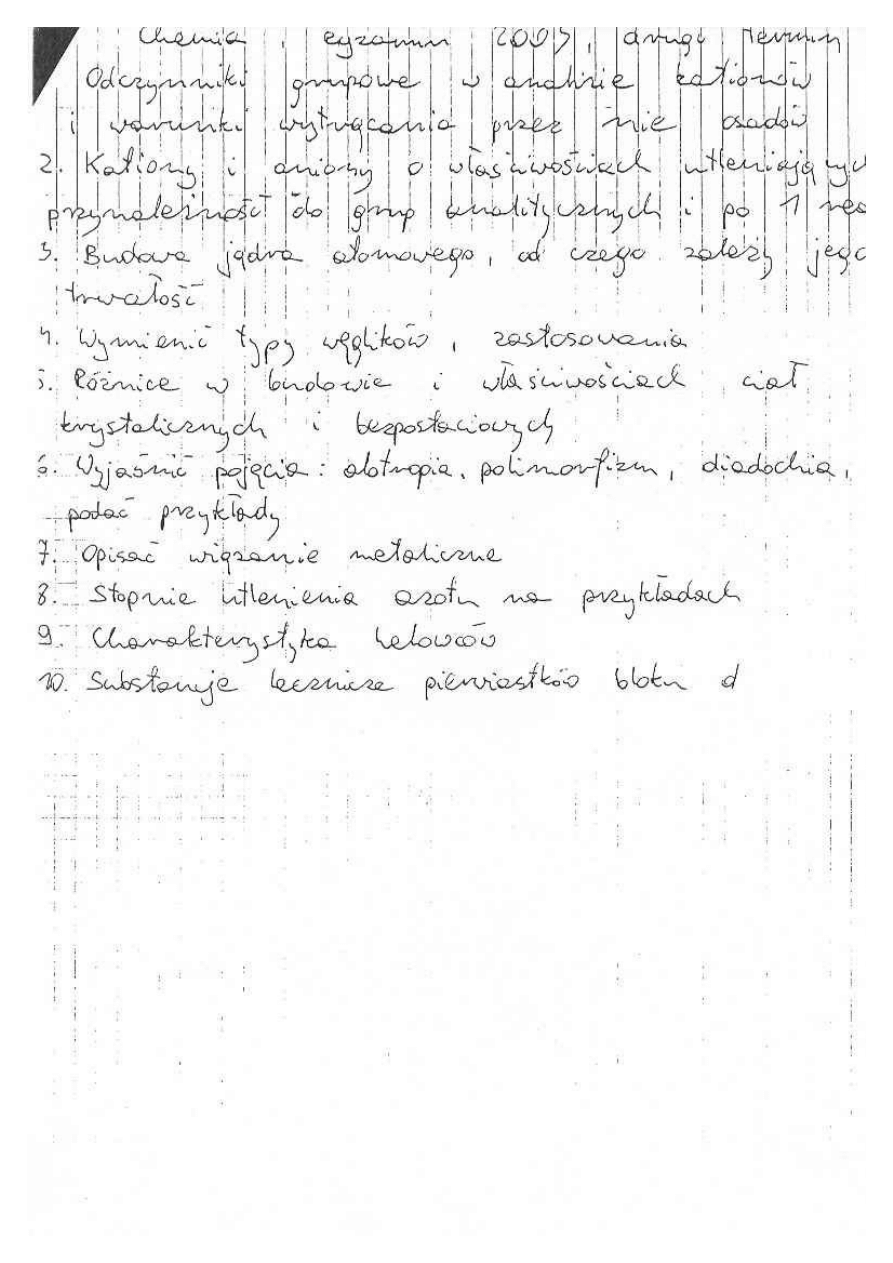 Chemia, egzamin 2005, drugi termin
Odczynniki grupowe w analizie kationów
i warunki wytrącania przez nie osadów
2. Kationy i aniony o właściwościach utleniających
przynależność do grup analitycznych i po 1 reac
3. Budowa jądra atomowego, od czego zależy jego
trwałość
4. Wymienić typy węglików, zastosowania
5. Różnice w budowie i właściwościach ciał
krystalicznych i bezpostaciowych
6. Wyjaśnić pojęcia: alotropia, polimorfizm, diadochia,
podać przykłady
7. Opisać wiązanie metaliczne
8. Stopnie utlenienia azotu na przykładach
9. Charakterystyka helowców
10. Substancje lecznicze pierwiastków bloku d